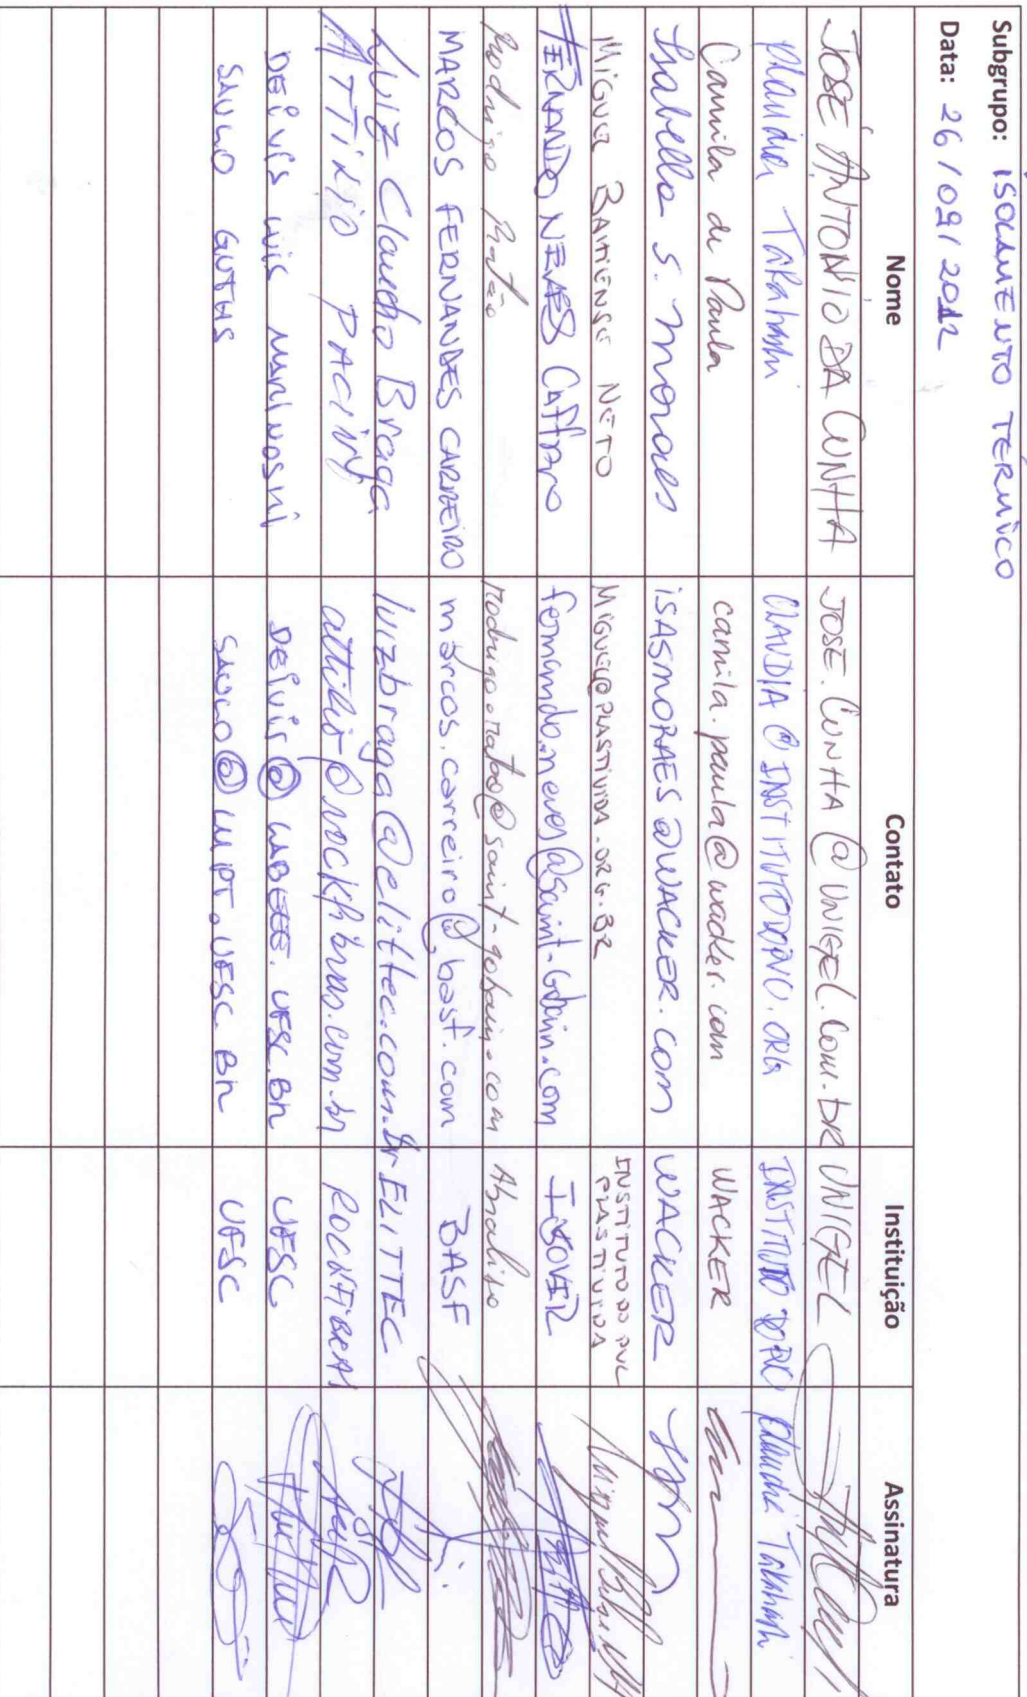 Subgrupo: ISOLAMENTO TÉRMICO
Data: 26/09/2012
Nome Contato Instituição Assinatura
JOSÉ ANTONIO DA CUNHA JOSE.CUNHA@UNIGEL.COM.BR UNIGEL
Claudia Takahashi CLAUDIA@INSTITUTODOPVC.ORG INSTITUTO DO PVC Claudia Takahashi
Camila de Paula camila.paula@wacker.com WACKER
Isabella S. Moraes ISASMORAES@WACKER.COM WACKER
MIGUEL BAHIENSE NETO MIGUEL@PLASTIVIDA.ORG.BR INSTITUTO DO PVC
PLASTIVIDA
FERNANDO NEVES Caffaro fernando.neves@saint-Gobain.com ISOVER
Rodrigo Ratão rodrigo.ratao@saint-gobain.com
MARCOS FERNANDES CARREIRO marcos.carreiro@basf.com BASF
Luiz Claudio Braga luizbraga@elittec.com.br ELITTEC
ATTILIO PACINI attilio@rockfibras.com.br ROCKFIBRAS
DEIVIS LUIS MARINOSKI DEIVIS@LABEEE.UFSC.BR UFSC
SAULO GUTHS SAULO@LMPT.UFSC.BR UFSC